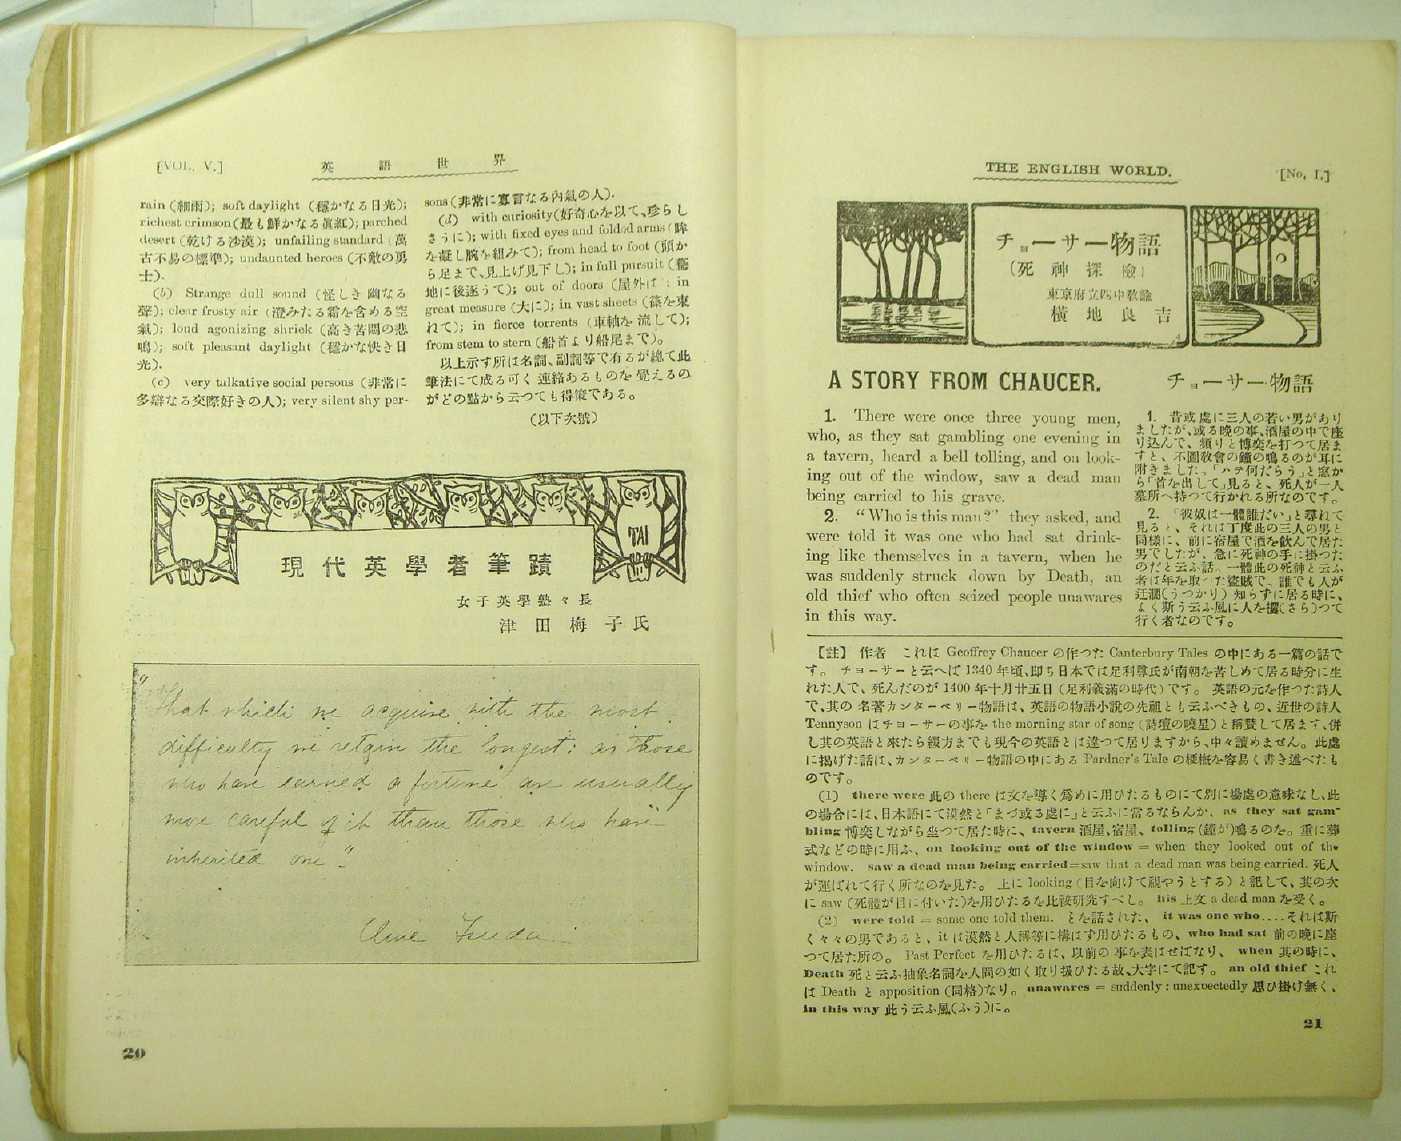 [VOL. V.]
英語世界
rain (細雨); soft daylight (穩かなる日光);
richest crimson (最も鮮かなる眞紅); parched
desert (乾ける沙漠); unfailing standard (萬
古不易の標準); undaunted heroes (不敵の勇
士).
(b) Strange dull sound (怪しき幽なる
聲); clear frosty air (澄みたる霜を含める空
氣); loud agonizing shriek (高き苦悶の悲
鳴); soft pleasant daylight (穩かな快き日
光).
(c) very talkative social persons (非常に
多辯なる交際好きの人); very silent shy per-
sons (非常に寡言なる內氣の人).
(d) with curiosity (好奇心を以て、珍らし
さうに); with fixed eyes and folded arms (眸
を凝し腕を組みて); from head to foot (頭か
ら足まで、見上げ見下し); in full pursuit (驀
地に後逐うて); out of doors (屋外に); in
great measure (大に); in vast sheets (篠を束
ねて); in fierce torrents (車軸を流して);
from stem to stern (船首より船尾まで)。
以上示す所は名詞、副詞等で有るが總て此
筆法にて成る可く連絡あるものを覺えるの
がどの點から云つても得策である。
(以下次號)
現代英學者筆蹟
女子英學塾々長
津田梅子氏
"That which we acquire with the most
difficulty we retain the longest; as those
who have earned a fortune are usually
more careful of it than those who have
inherited one".
Ume Tsuda
20
THE ENGLISH WORLD.
[No. I.]
チョーサー物語
(死神探險)
東京府立四中敎諭
橫地良吉
A STORY FROM CHAUCER.
1. There were once three young men,
who, as they sat gambling one evening in
a tavern, heard a bell tolling, and on look-
ing out of the window, saw a dead man
being carried to his grave.
2. "Who is this man?" they asked, and
were told it was one who had sat drink-
ing like themselves in a tavern, when he
was suddenly struck down by Death, an
old thief who often seized people unawares
in this way.
チョーサー物語
1. 昔或處に三人の若い男があり
ましたが、或る晩の事、酒屋の中で座
り込んで、頻りと博奕を打つて居ま
すと、不圖敎會の鐘の鳴るのが耳に
附きました。「ハテ何だらう」と窓か
ら「首を出して」見ると、死人が一人
墓所へ持つて行かれる所なのです。
2. 「彼奴は一體誰だい」と尋れて
見ると、それは丁度此の三人の男と
同樣に、前に宿屋で酒を飮んで居た
男でしたが、急に死神の手に掛つた
のだと云ふ話。一體此の死神と云ふ
者は年を取つた盜賊で、誰でも人が
迂濶(うつかり)知らずに居る時に、
よく斯う云ふ風に人を攫(さら)つて
行く者なのです。
【註】 作者 これは Geoffrey Chaucer の作つた Canterbury Tales の中にある一篇の話で
す。 チョーサーと云へば 1340 年頃、卽ち日本では足利尊氏が南朝を苦しめて居る時分に生
れた人で、死んだのが 1400 年十月廿五日 (足利義滿の時代) です。 英語の元を作つた詩人
で、其の名著カンターベリー物語は、英語の物語小說の先祖とも云ふべきもの、近世の詩人
Tennyson はチョーサーの事を the morning star of song (詩壇の曉星) と稱賛して居ます、併
し其の英語と來たら綴方までも現今の英語とは違つて居りますから、中々讀めません。此處
に揭げた話は、カンターベリー物語の中にある Pardner's Tale の梗槪を容易く書き述べたも
のです。
(1) there were 此の there は文を導く爲めに用ひたるものにて別に場處の意味なし、此
の場合には、日本語にて漠然と「まづ或る處に」と云ふに當るならんか. as they sat gam-
bling 博奕しながら坐つて居た時に、tavern 酒屋、宿屋、tolling (鐘が)鳴るのを。重に葬
式などの時に用ふ、on looking out of the window = when they looked out of the
window. saw a dead man being carried=saw that a dead man was being carried. 死人
が運ばれて行く所なのを見た。 上に looking (目を向けて覗やうとする) と記して、其の次
に saw (死體が目に付いた)を用ひたるを比較硏究すべし。 his 上文 a dead man を受く。
(2) were told = some one told them. とを話された、 it was one who.....それは斯
く々々の男であると、it は漠然と人稱等に構はず用ひたるもの、who had sat 前の晩に座
つて居た所の。 Past Perfect を用ひたるは、以前の事を表はせばなり、 when 其の時に、
Death 死と云ふ抽象名詞を人間の如く取り扱ひたる故、大字にて記す。 an old thief これ
は Death と apposition (同格)なり。unawares = suddenly: unexpectedly 思ひ掛け無く、
in this way 此う云ふ風(ふう)に。
21